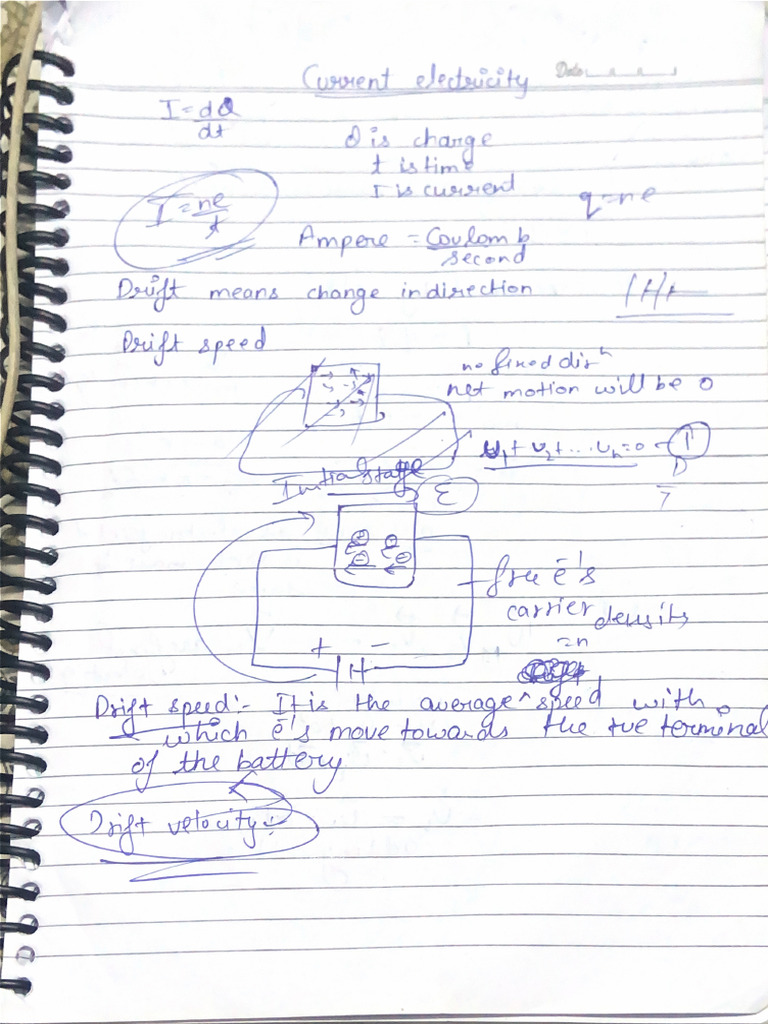 Current electricity Date
I = dQ/dt
Q is charge
t is time
I is current
I = ne/t
q = ne
Ampere = Coulomb/second
Drift means change in direction
Drift speed
no fixed dirⁿ
net motion will be 0
u₁ + u₂ + ... uₙ = 0 - ①
Initial stage
E
free ē's
carrier density
= n
+ -
Drift speed :- It is the average ^ speed with
which ē's move towards the +ve terminal
of the battery
Drift velocity :-